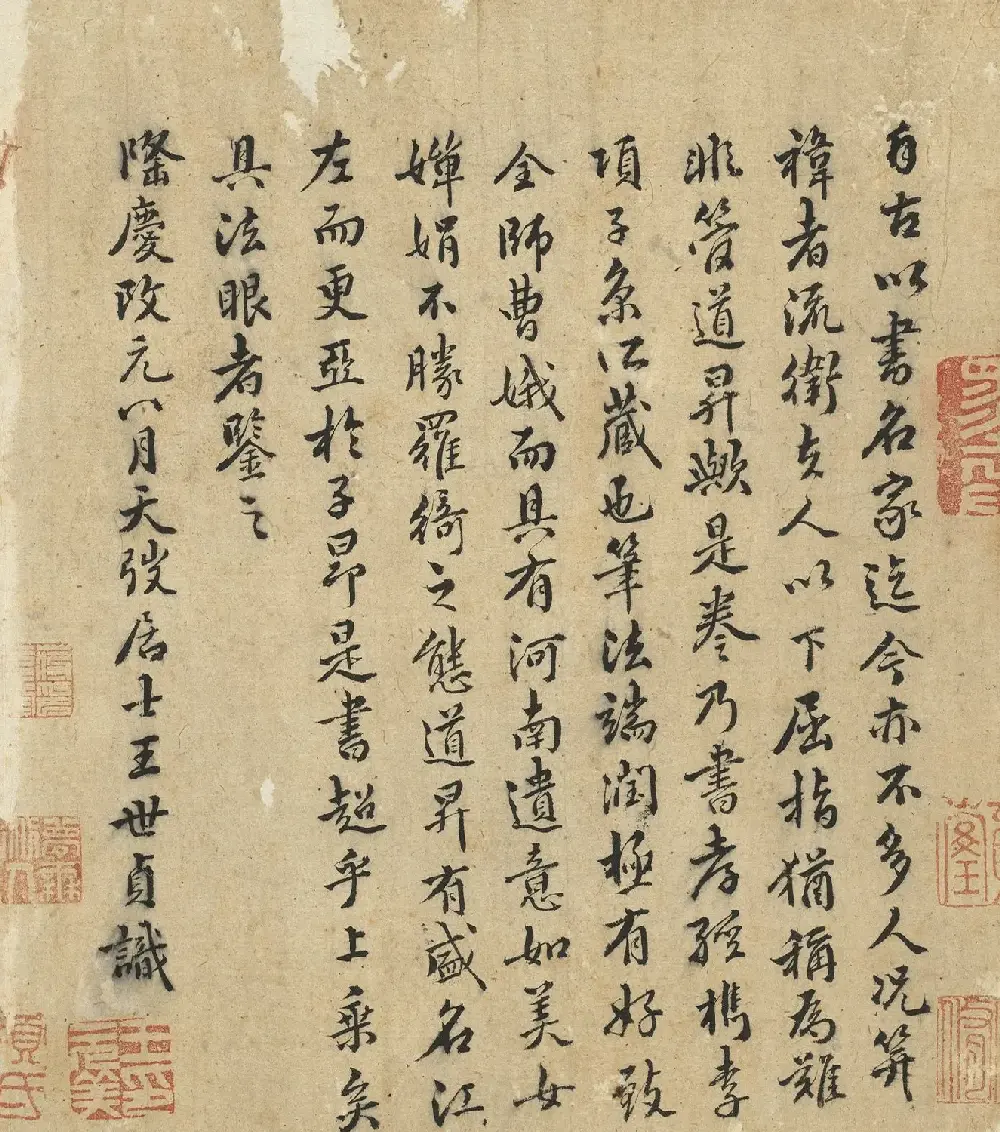 自古以書名家迄今亦不多人况筓
褘者流衛夫人以下屈指猶稱為難
眂管道昇歟是卷乃書孝經檇李
項子京所藏也筆法端潤極有好致
全師曹娥而具有河南遺意如美女
嬋娟不勝羅綺之態道昇有盛名江
左而更亞於子昂是書超乎上乘矣
具法眼者鑒之
隆慶改元八月天弢居士王世貞識